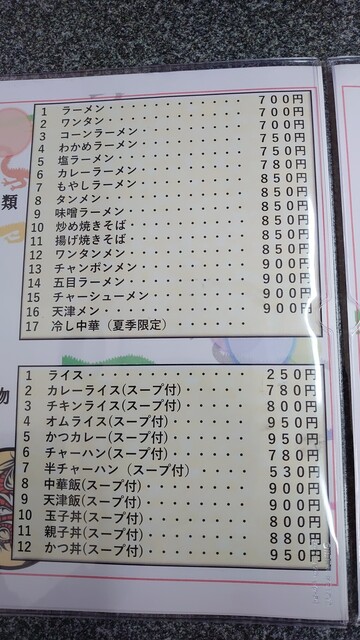 1 ラーメン・・・・・・・・・・・・700円
2 ワンタン・・・・・・・・・・・・700円
3 コーンラーメン・・・・・・・・・700円
4 わかめラーメン・・・・・・・・・750円
5 塩ラーメン・・・・・・・・・・・750円
6 カレーラーメン・・・・・・・・・780円
7 もやしラーメン・・・・・・・・・850円
8 タンメン・・・・・・・・・・・・850円
9 味噌ラーメン・・・・・・・・・・850円
10 炒め焼きそば・・・・・・・・・・850円
11 揚げ焼きそば・・・・・・・・・・850円
12 ワンタンメン・・・・・・・・・・850円
13 チャンポンメン・・・・・・・・・900円
14 五目ラーメン・・・・・・・・・・900円
15 チャーシューメン・・・・・・・・900円
16 天津メン・・・・・・・・・・・・900円
17 冷し中華（夏季限定）
類
1 ライス・・・・・・・・・・・・・250円
2 カレーライス(スープ付)・・・・・780円
3 チキンライス(スープ付)・・・・・800円
4 オムライス(スープ付)・・・・・・950円
5 かつカレー(スープ付)・・・・・・950円
6 チャーハン(スープ付)・・・・・・780円
7 半チャーハン（スープ付）・・・・530円
8 中華飯(スープ付)・・・・・・・・900円
9 天津飯(スープ付)・・・・・・・・900円
10 玉子丼(スープ付)・・・・・・・・800円
11 親子丼(スープ付)・・・・・・・・880円
12 かつ丼(スープ付)・・・・・・・・950円
物